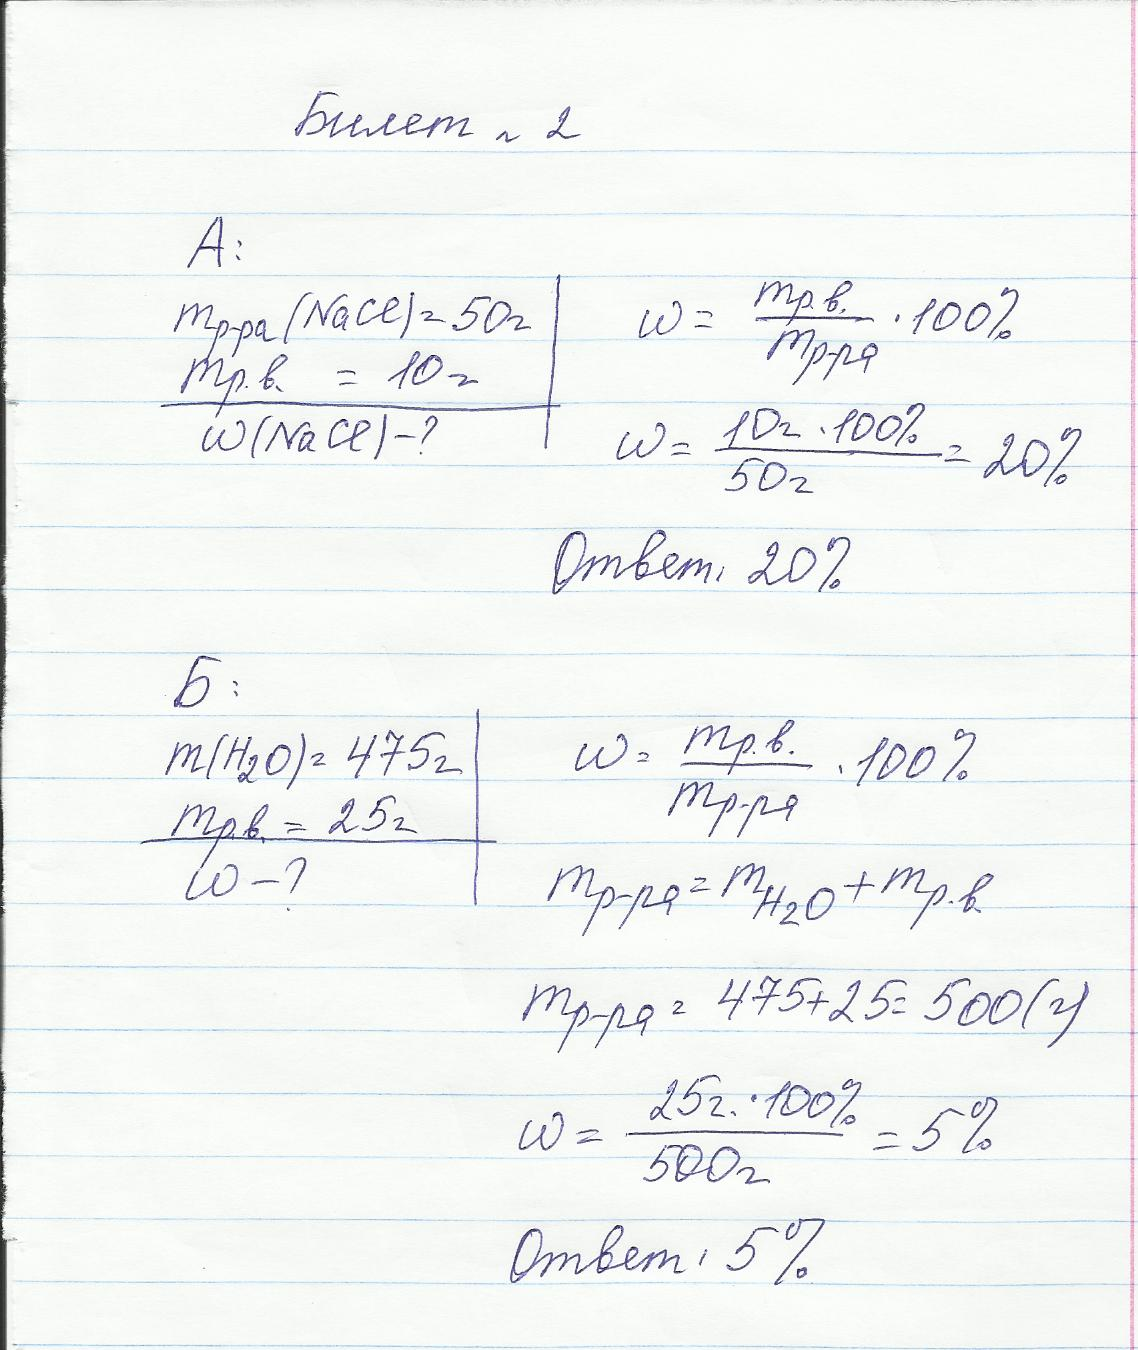 Билет ~ 2
А:
mр-ра (NaCl) = 50г
mр.в. = 10г
ω(NaCl) - ?
ω = mр.в. / mр-ра · 100%
ω = 10г · 100% / 50г = 20%
Ответ: 20%
Б:
m(H2O) = 475г
mр.в. = 25г
ω - ?
ω = mр.в. / mр-ра · 100%
mр-ра = mH2O + mр.в.
mр-ра = 475+25 = 500(г)
ω = 25г. · 100% / 500г = 5%
Ответ: 5%